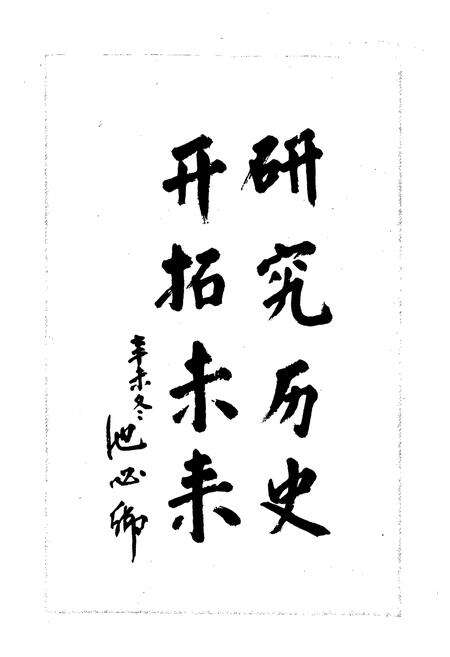 研究历史
开拓未来
辛未冬
池必卿